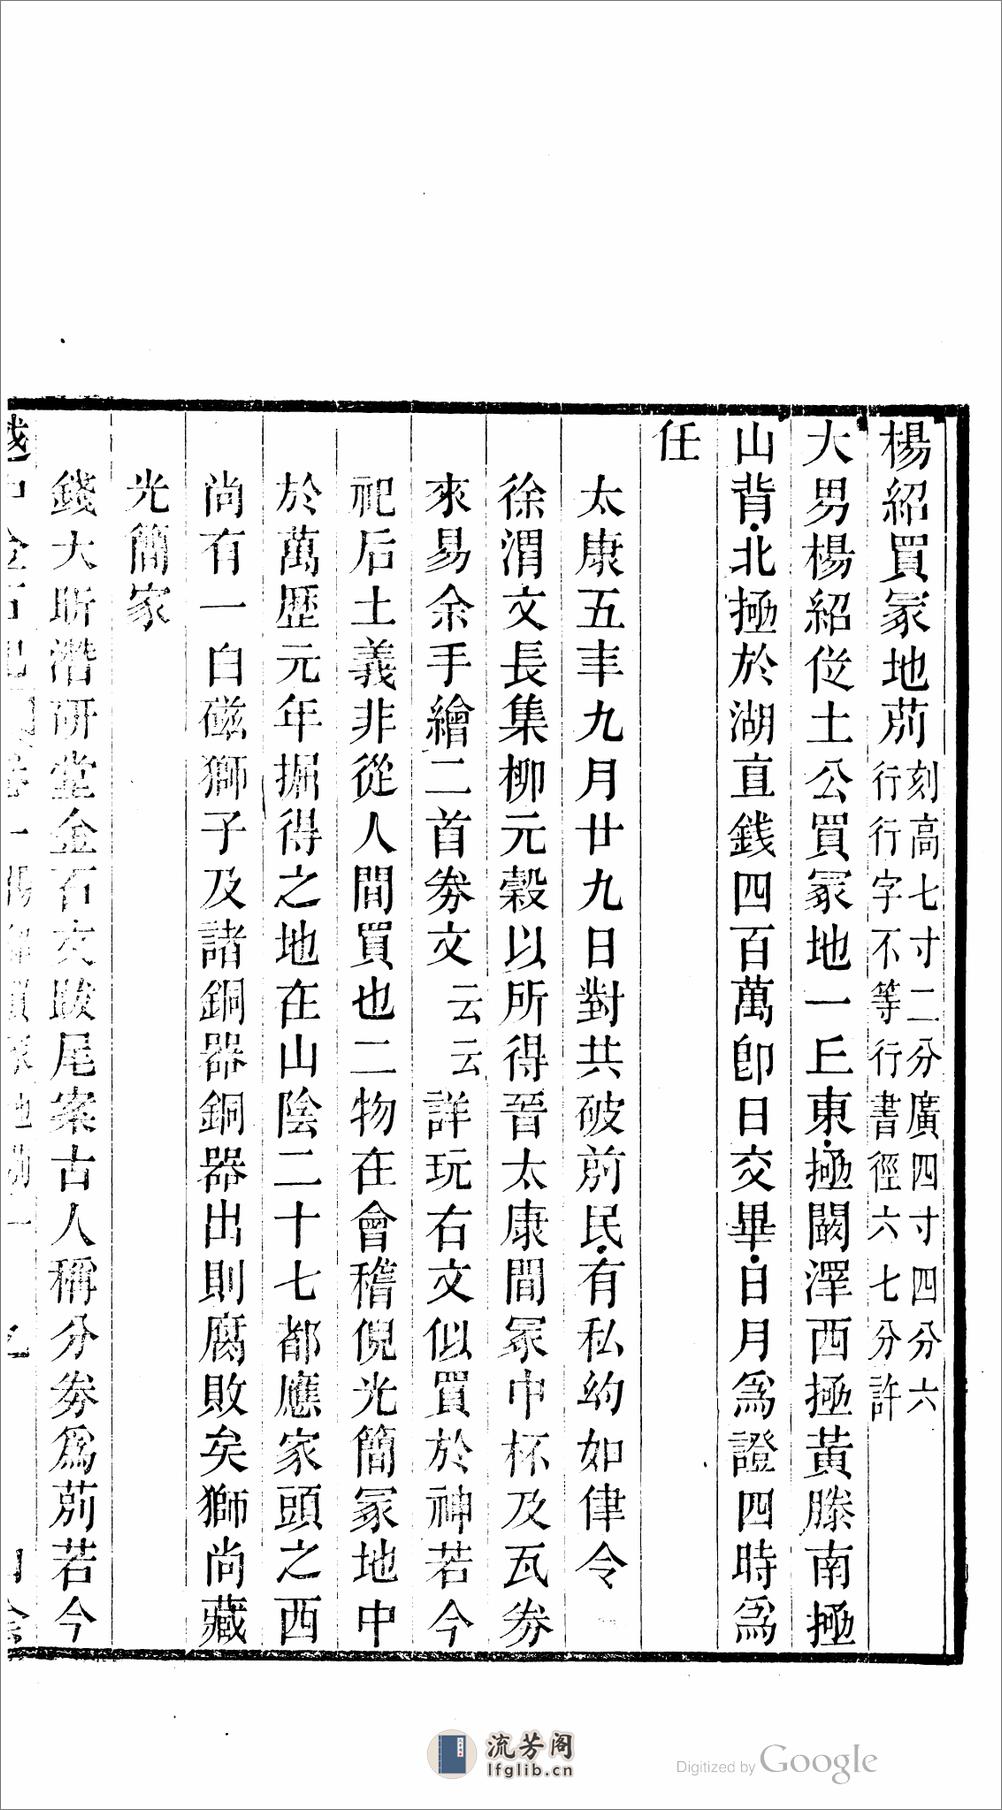 楊紹買冢地莂刻高七寸二分廣四寸四分六
行行字不等行書徑六七分許
大男楊紹從土公買冢地一丘東極闞澤西極黃滕南極
山背北極於湖直錢四百萬卽日交畢日月爲證四時爲
任
太康五年九月廿九日對共破莂民有私約如律令
徐渭文長集柳元穀以所得晉太康間冢中杯及瓦券
來易余手繪二首券文云云詳玩右文似買於神若今
祀后土義非從人間買也二物在會稽倪光簡冢地中
於萬歷元年掘得之地在山陰二十七都應家頭之西
尚有一白磁獅子及諸銅器銅器出則腐敗矣獅尚藏
光簡家
錢大昕潛研堂金石文跋尾案古人稱分券爲莂若今
越中金石記 卷一楊紹買冢地莂一
流芳阁
lfglib.cn
Digitized by Google